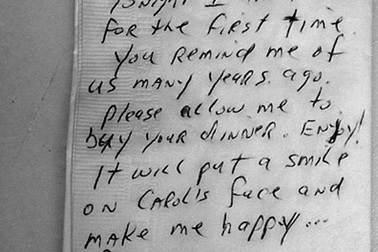 for the first time.
You remind me of
us many years ago.
Please allow me to
buy your dinner. Enjoy!
It will put a smile
on Carol's face and
make me happy...